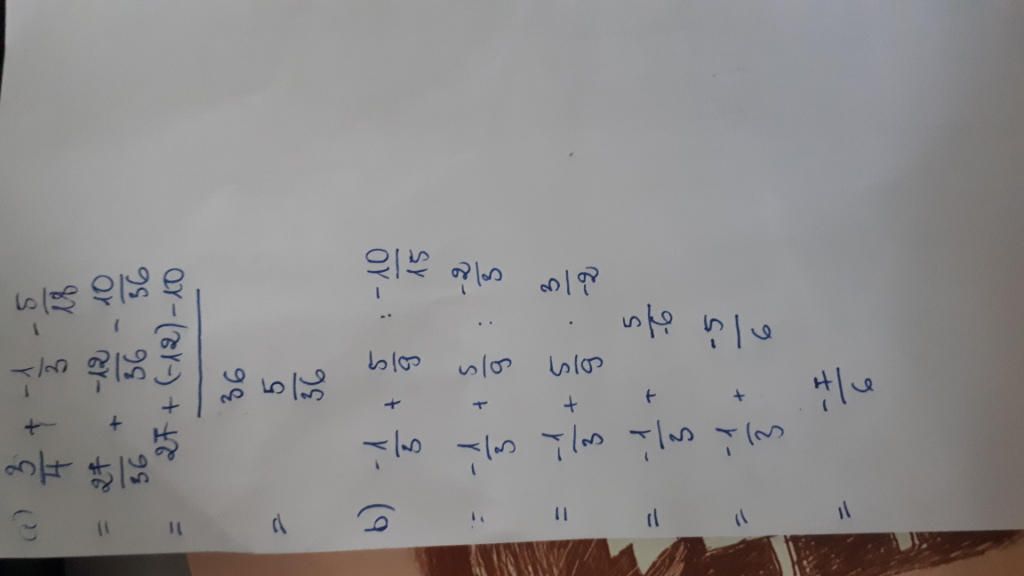 a) 3/4 + -1/3 - 5/18
= 27/36 + -12/36 - 10/36
= 27 + (-12) - 10 / 36
= 5/36
b) -1/3 + 5/9 : -10/15
= -1/3 + 5/9 : -2/3
= -1/3 + 5/9 . 3/-2
= -1/3 + 5/-6
= -1/3 + -5/6
= -7/6